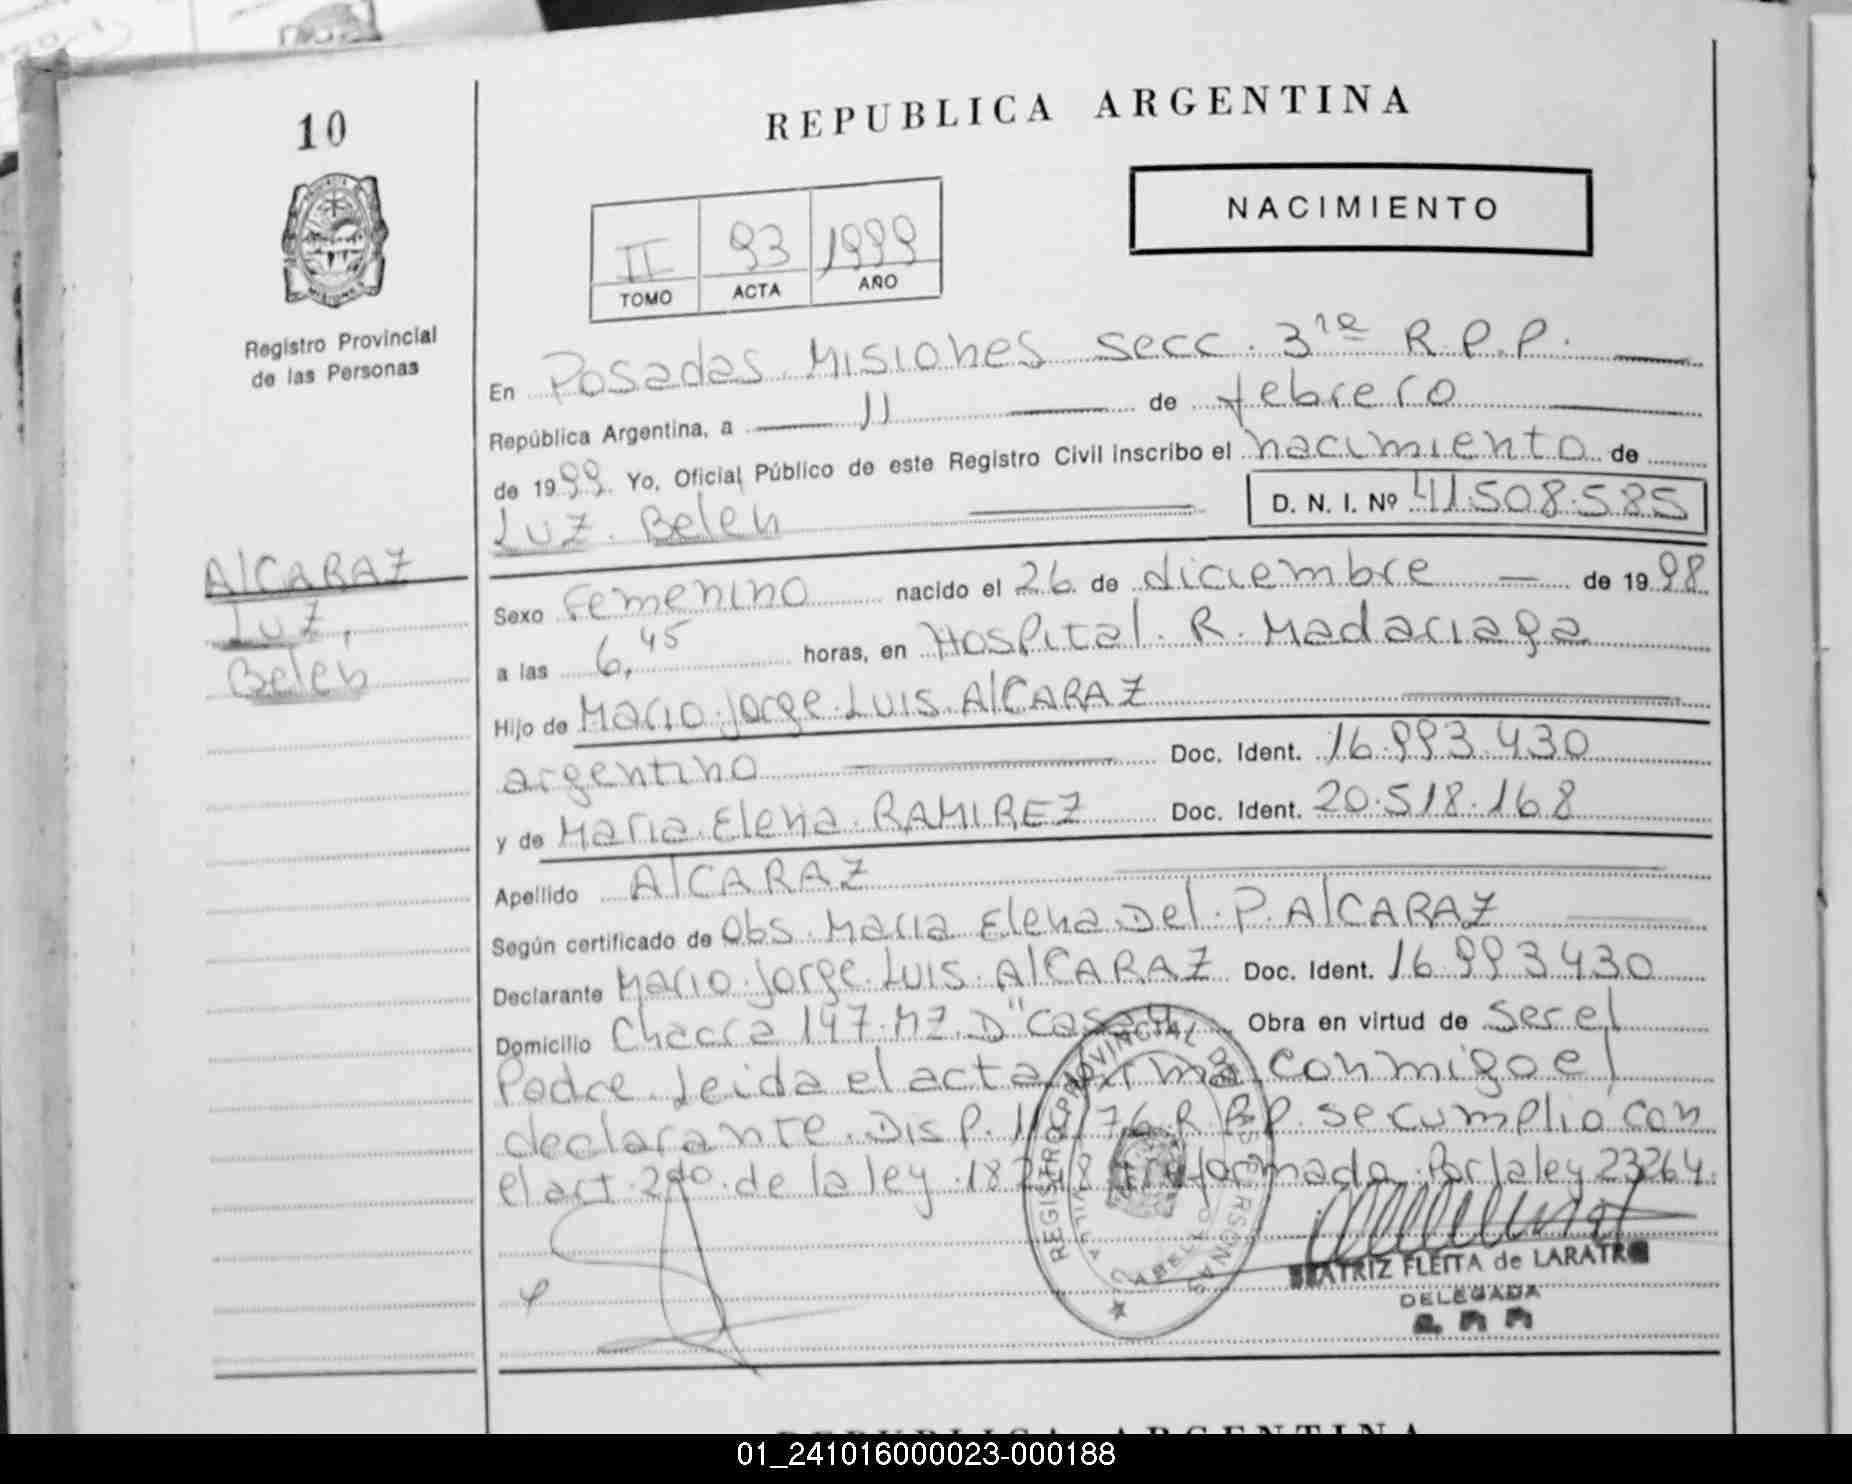 10
REPUBLICA ARGENTINA
NACIMIENTO
II 93 1999
TOMO ACTA AÑO
Registro Provincial
de las Personas
En Posadas Misiones secc. 3ra R.P.P.
República Argentina, a 11 de febrero
de 1999. Yo, Oficial Público de este Registro Civil inscribo el nacimiento de
Luz Belen D. N. I. Nº 41.508.585
AlCARAZ
Luz,
Belen
Sexo Femenino nacido el 26 de diciembre de 1998
a las 6,45 horas, en Hospital R. Madariaga
Hijo de Mario Jorge Luis AlCARAZ
argentino Doc. Ident. 16.993.430
y de Maria Elena RAMIREZ Doc. Ident. 20.518.168
Apellido AlCARAZ
Según certificado de Obs. Maria Elena Del P. AlCARAZ
Declarante Mario Jorge Luis AlCARAZ Doc. Ident. 16.993430
Domicilio Chacra 147 MZ. D" casa 4 Obra en virtud de ser el
Padre. Leida el acta firma conmigo el
declarante. Disp. /76 R.P.P. se cumplio con
el art. 2do. de la ley 18248 reformada Por la ley 23264.
REGISTRO PROVINCIAL DE LAS PERSONAS
VILLA CABELLO
BEATRIZ FLEITA de LARATRO
DELEGADA
REPUBLICA ARGENTINA
01_241016000023-000188